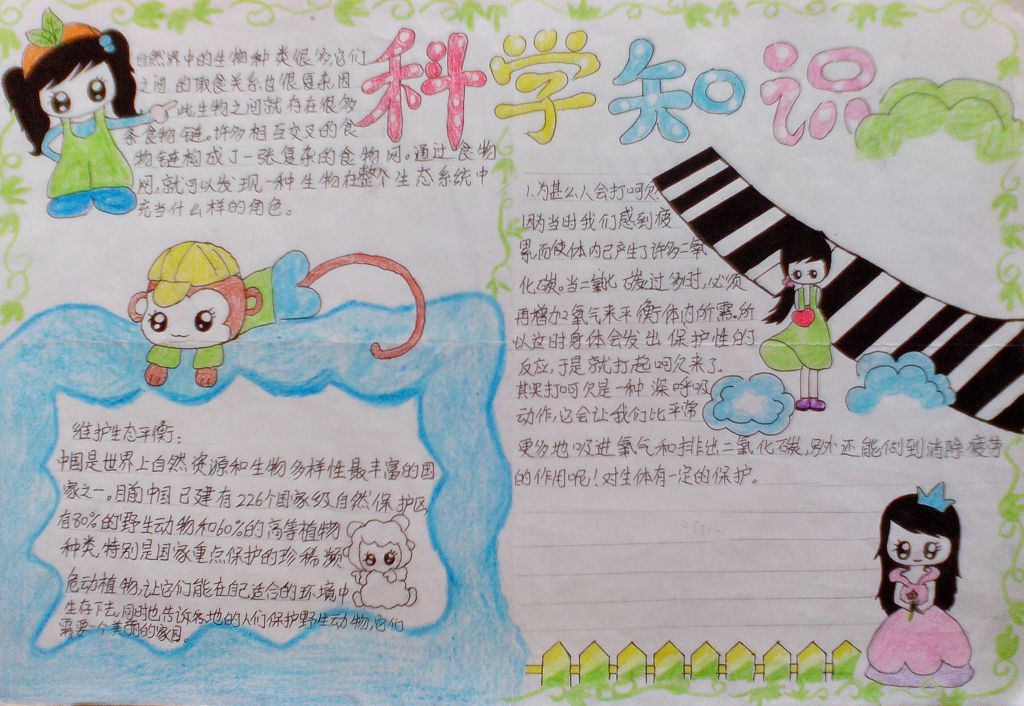 科学知识
自然界中的生物种类很多,它们
之间的取食关系也很复杂,因
此生物之间就存在很多
条食物链。许多相互交叉的食
物链构成了一张复杂的食物网。通过食物
网,就可以发现一种生物在整个生态系统中
充当什么样的角色。
维护生态平衡:
中国是世界上自然资源和生物多样性最丰富的国
家之一。目前中国已建有226个国家级自然保护区,
有80%的野生动物和60%的高等植物
种类,特别是国家重点保护的珍稀濒
危动植物,让它们能在自己适合的环境中
生存下去,同时也告诉各地的人们保护野生动物,它们
需要一个美丽的家园。
1.为甚么人会打呵欠
因为当时我们感到疲
累,而使体内已产生了许多二氧
化碳。当二氧化碳过多时,必须
再增加2氧气来平衡体内所需。所
以这时身体会发出保护性的
反应,于是就打起呵欠来了。
其实打呵欠是一种深呼吸
动作,它会让我们比平常
更多地吸进氧气和排出二氧化碳,另外还能何到消除疲劳
的作用呢!对生体有一定的保护。